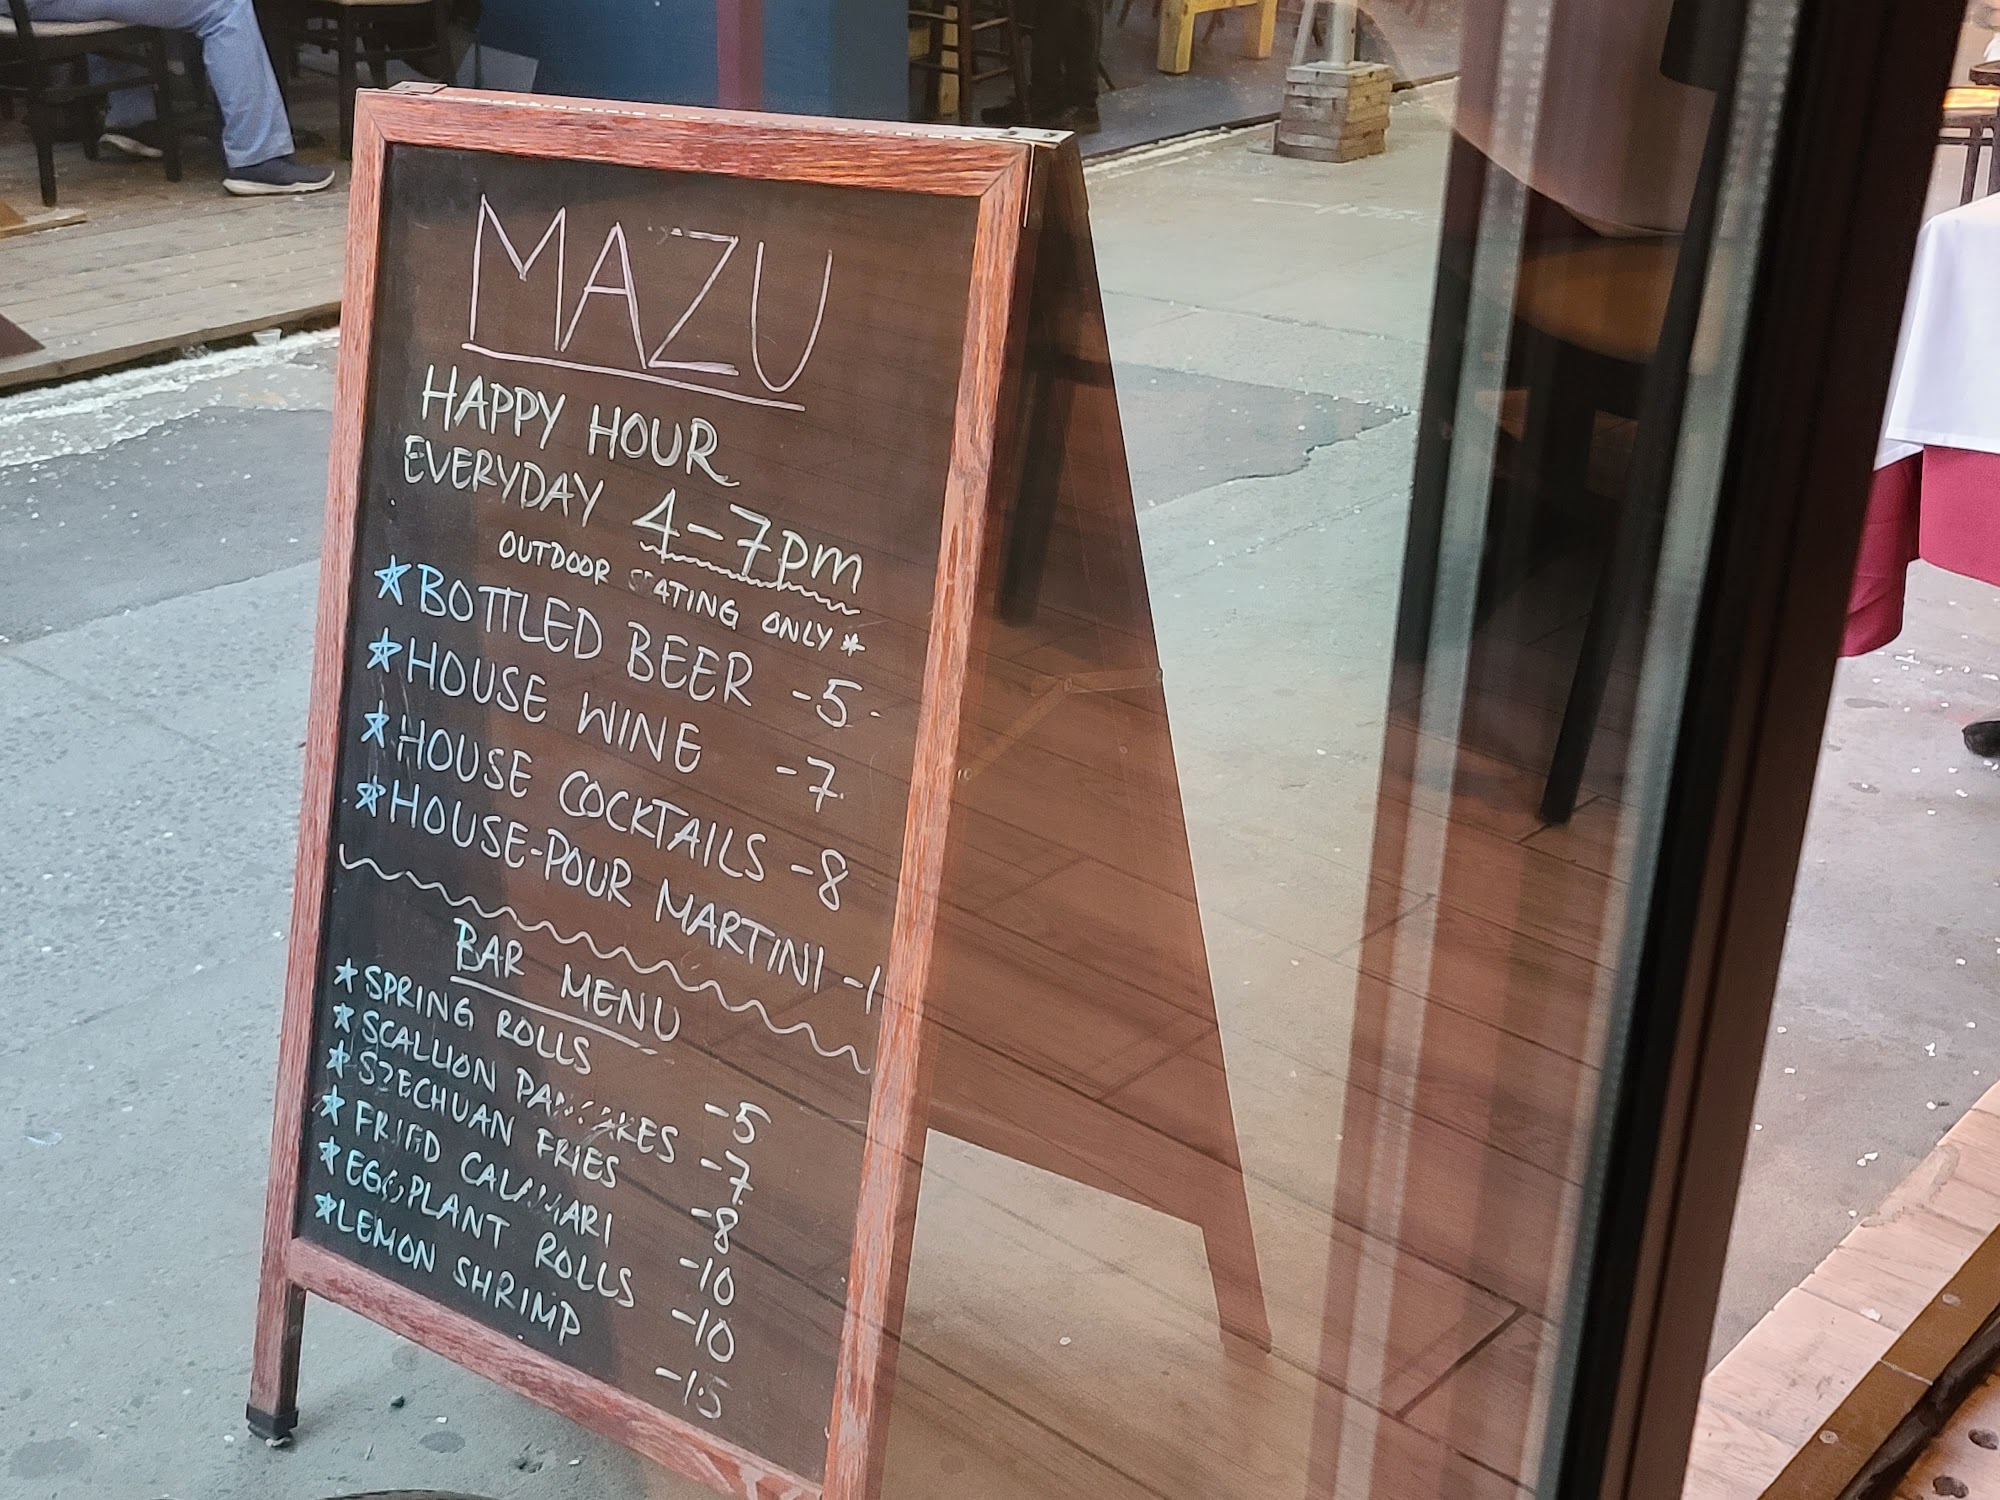 MAZU
HAPPY HOUR
EVERYDAY 4-7pm
OUTDOOR SEATING ONLY*
*BOTTLED BEER -5
*HOUSE WINE -7
*HOUSE COCKTAILS -8
*HOUSE-POUR MARTINI -1
BAR MENU
*SPRING ROLLS -5
*SCALLION PANCAKES -7
*SZECHUAN FRIES -8
*FRIED CALAMARI -10
*EGGPLANT ROLLS -10
*LEMON SHRIMP -15